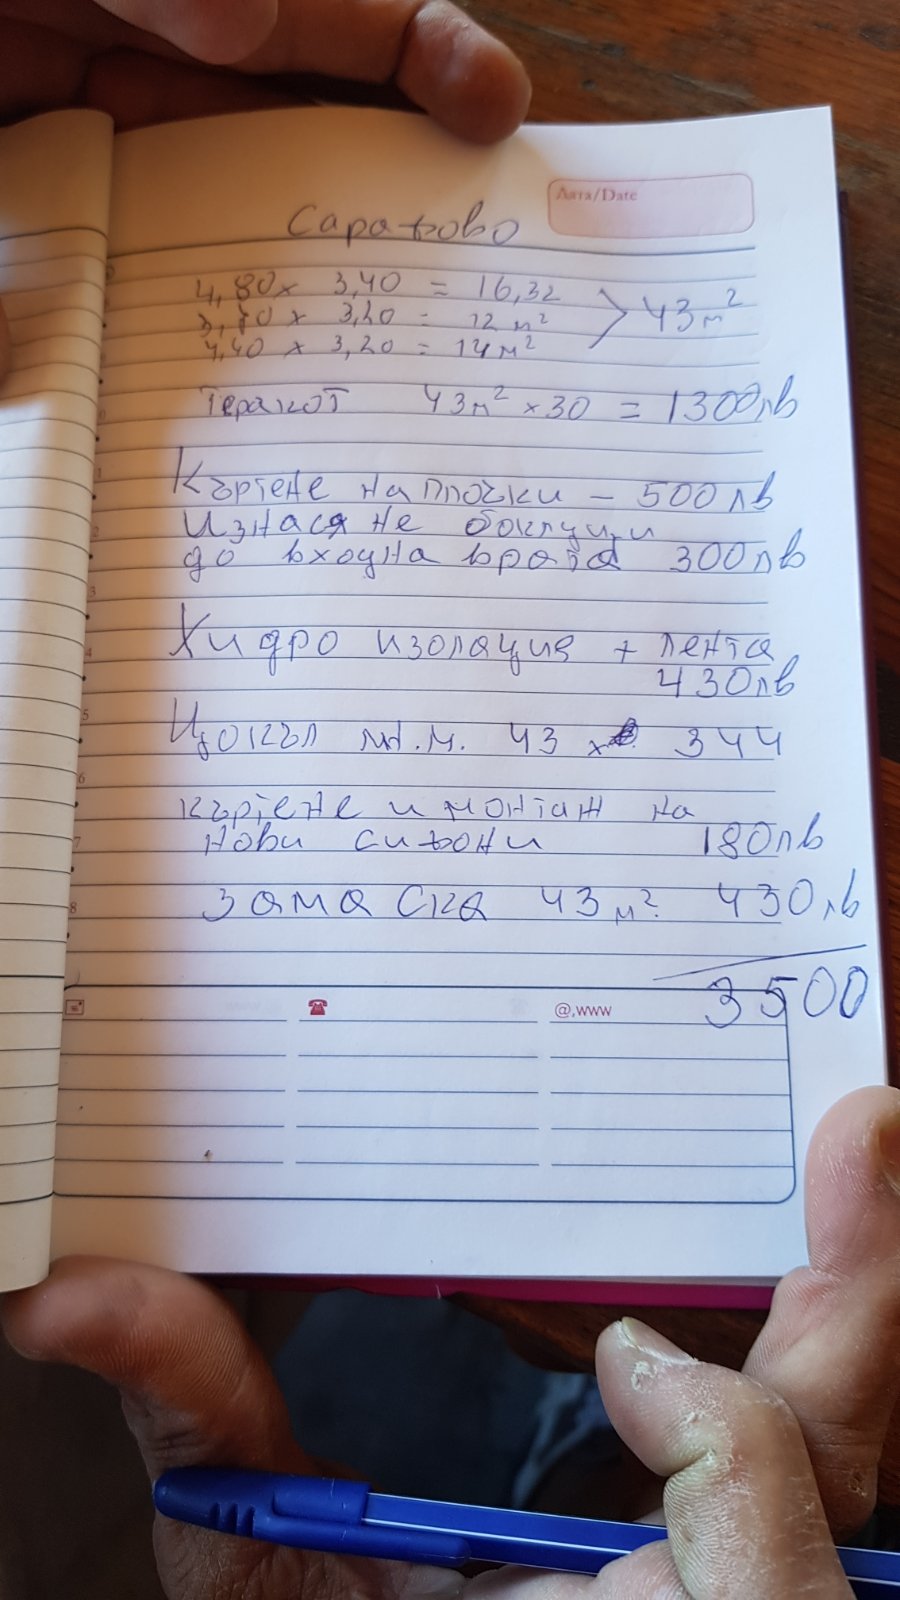 Дата/Date
Сарафово
4,80 x 3,40 = 16,32
3,70 x 3,20 = 12 м² > 43 м²
4,40 x 3,20 = 14 м²
Теракот 43 м² x 30 = 1300 лв
Къртене на плочки - 500 лв
Изнасяне боклуци
до входна врата 300 лв
Хидро изолация + лента
430 лв
Цокъл м. 43 x 344
къртене и монтаж на
нови сифони 180 лв
Замаска 43 м² 430 лв
3500
@,www
1
2
3
4
5
6
7
8